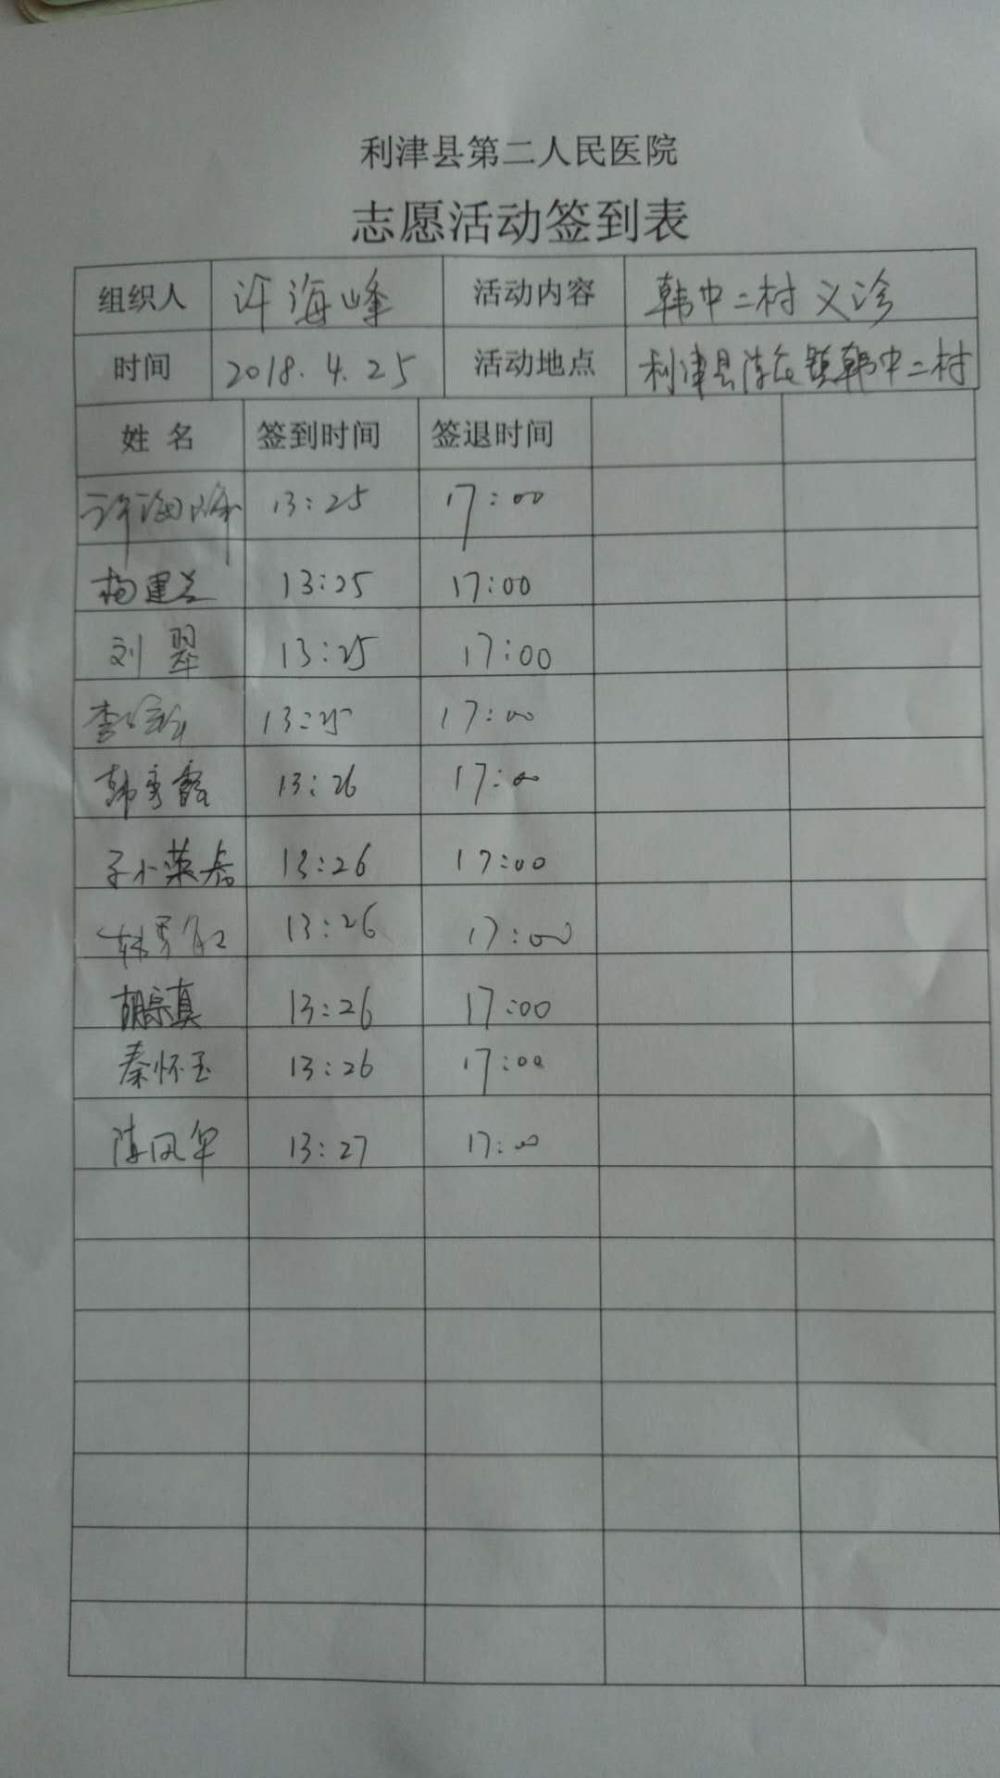 利津县第二人民医院
志愿活动签到表
组织人 许海峰 活动内容 韩中二村义诊
时间 2018.4.25 活动地点 利津县陈庄镇韩中二村
姓名 签到时间 签退时间
许海峰 13:25 17:00
杨建兰 13:25 17:00
刘翠 13:25 17:00
13:25 17:00
13:26 17:00
13:26 17:00
13:26 17:00
胡宗真 13:26 17:00
秦怀玉 13:26 17:00
陈凤华 13:27 17:00